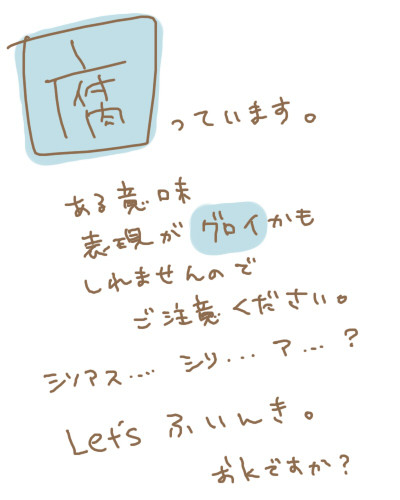 腐っています。
ある意味
表現がグロイかも
しれませんので
ご注意ください。
シリアス…. シリ... ア...?
Let's ふいんき。
おkですか?